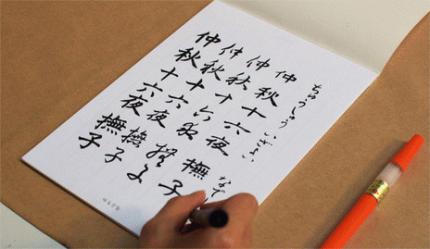 ちゅうしゅう いざよい なで
仲秋十六夜撫子
仲秋十六夜撫子
仲秋十六夜撫子
仲秋十六夜撫子